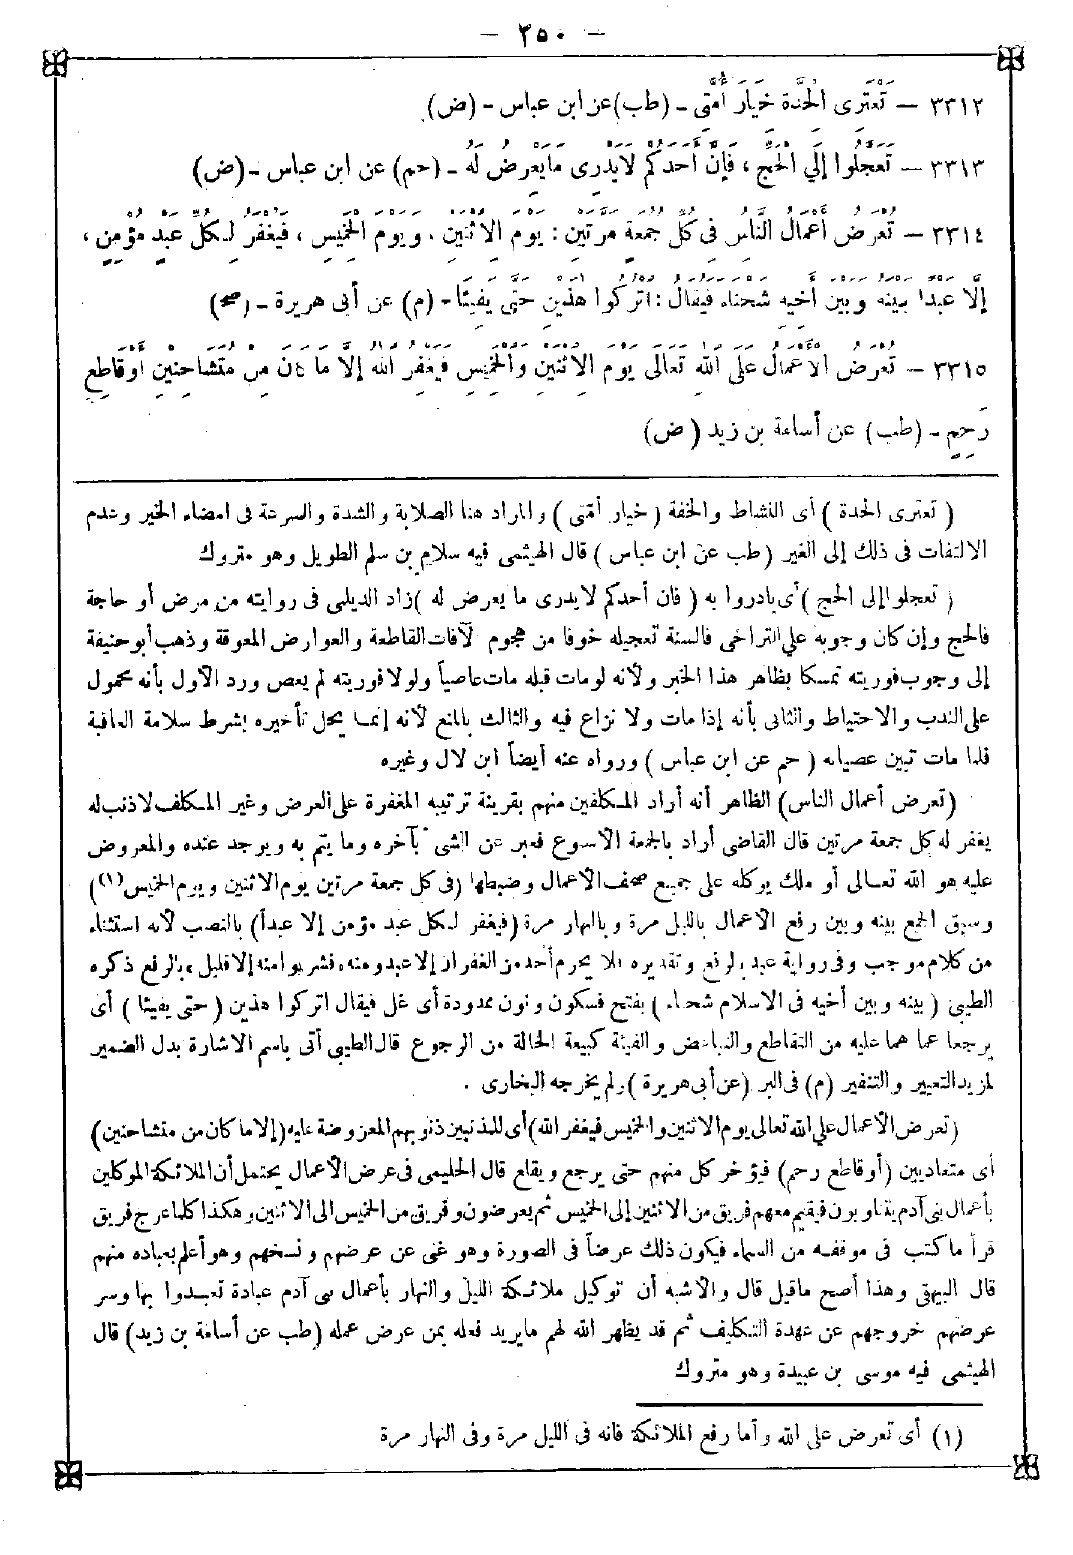 — ٢٥٠ —
٣٣١٢ — تَعْتَرِى الْحِدَّةُ خِيَارَ أُمَّتِى - (طب) عن ابن عباس - (ض)
٣٣١٣ — تَعَجَّلُوا إِلَى الْحَجِّ ، فَإِنَّ أَحَدَكُمْ لَا يَدْرِى مَا يَعْرِضُ لَهُ - (حم) عن ابن عباس - (ض)
٣٣١٤ — تُعْرَضُ أَعْمَالُ النَّاسِ فِى كُلِّ جُمُعَةٍ مَرَّتَيْنِ : يَوْمَ الِاثْنَيْنِ ، وَيَوْمَ الْخَمِيسِ ، فَيُغْفَرُ لِكُلِّ عَبْدٍ مُؤْمِنٍ ،
إِلَّا عَبْدًا بَيْنَهُ وَبَيْنَ أَخِيهِ شَحْنَاءُ فَيُقَالُ : اتْرُكُوا هٰذَيْنِ حَتَّى يَفِيئَا - (م) عن أبى هريرة - (صح)
٣٣١٥ — تُعْرَضُ الْأَعْمَالُ عَلَى اللهِ تَعَالَى يَوْمَ الِاثْنَيْنِ وَالْخَمِيسِ فَيَغْفِرُ اللهُ إِلَّا مَا كَانَ مِنْ مُتَشَاحِنَيْنِ أَوْ قَاطِعِ
رَحِمٍ - (طب) عن أسامة بن زيد (ض)
( تعترى الحدة ) أى النشاط والخفة ( خيار أمتى ) والمراد هنا الصلابة والشدة والسرعة فى امضاء الخير وعدم
الالتفات فى ذلك إلى الغير ( طب عن ابن عباس ) قال الهيثمى فيه سلام بن سلم الطويل وهو متروك
( تعجلوا إلى الحج ) أى بادروا به ( فان أحدكم لا يدرى ما يعرض له ) زاد الديلمى فى روايته من مرض أو حاجة
فالحج وإن كان وجوبه على التراخى فالسنة تعجيله خوفا من هجوم الآفات القاطعة والعوارض المعوقة وذهب أبو حنيفة
إلى وجوب فوريته تمسكا بظاهر هذا الخبر ولأنه لو مات قبله مات عاصياً ولولا فوريته لم يعص ورد الأول بأنه محمول
على الندب والاحتياط والثانى بأنه إذا مات ولا نزاع فيه والثالث بالمنع لأنه إنما يحل تأخيره بشرط سلامة العاقبة
فلما مات تبين عصيانه ( حم عن ابن عباس ) ورواه عنه أيضاً ابن لال وغيره
(تعرض أعمال الناس) الظاهر أنه أراد المكلفين منهم بقرينة ترتيبه المغفرة على العرض وغير المكلف لا ذنب له
يغفر له كل جمعة مرتين قال القاضى أراد بالجمعة الأسبوع فعبر عن الشىء بآخره وما يتم به ويوجد عنده والمعروض
عليه هو الله تعالى أو ملك يوكله على جميع صحف الأعمال وضبطها (فى كل جمعة مرتين يوم الاثنين ويوم الخميس(١))
وسبق الجمع بينه وبين رفع الأعمال بالليل مرة وبالنهار مرة (فيغفر لكل عبد مؤمن إلا عبداً) بالنصب لأنه استثناء
من كلام موجب وفى رواية عبد بالرفع وتقديره فلا يحرم أحد من الغفران إلا عبد ومنه ، فشربوا منه إلا قليل ، بالرفع ذكره
الطيبى ( بينه وبين أخيه فى الاسلام شحناء ) بفتح فسكون ونون ممدودة أى غل فيقال اتركوا هذين ( حتى يفيئا ) أى
يرجعا عما هما عليه من التقاطع والتباغض والفيئة كبيعة الحالة من الرجوع قال الطيبى أتى باسم الاشارة بدل الضمير
لمزيد التعيير والتنفير (م) فى البر (عن أبى هريرة ) ولم يخرجه البخارى .
(تعرض الأعمال على الله تعالى يوم الاثنين والخميس فيغفر الله) أى للمذنبين ذنوبهم المعروضة عليه (إلا ما كان من متشاحنين)
أى متعاديين (أو قاطع رحم) فيؤخر كل منهم حتى يرجع ويقلع قال الحليمى فى عرض الأعمال يحتمل أن الملائكة الموكلين
بأعمال بنى آدم يتناوبون فيقيم معهم فريق من الاثنين إلى الخميس ثم يعرضون وفريق من الخميس الى الاثنين وهكذا كلما عرج فريق
قرأ ما كتب فى موقفه من السماء فيكون ذلك عرضاً فى الصورة وهو غنى عن عرضهم ونسخهم وهو أعلم بعباده منهم
قال البيهقى وهذا أصح ما قيل قال والأشبه أن توكيل ملائكة الليل والنهار بأعمال بنى آدم عبادة تعبدوا بها وسر
عرضهم خروجهم عن عهدة التكليف ثم قد يظهر الله لهم ما يريد فعله بمن عرض عمله (طب عن أسامة بن زيد) قال
الهيثمى فيه موسى بن عبيدة وهو متروك
(١) أى تعرض على الله وأما رفع الملائكة فانه فى الليل مرة وفى النهار مرة